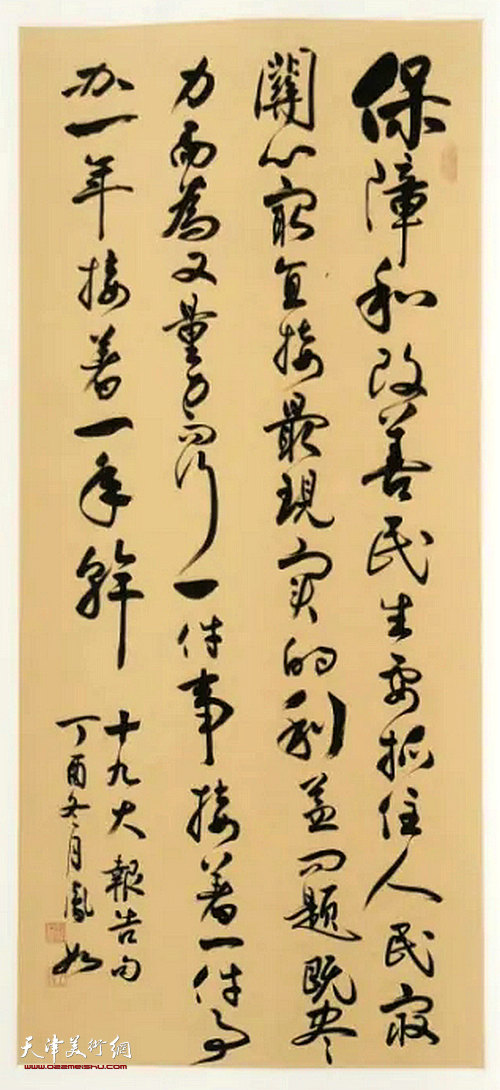 保障和改善民生要抓住人民最
關心最直接最現实的利益问题既尽
力而為又量力而行一件事接着一件事
办一年接着一年幹
十九大報告句
丁酉冬月鳳如
天津美術網
www.022meishu.com